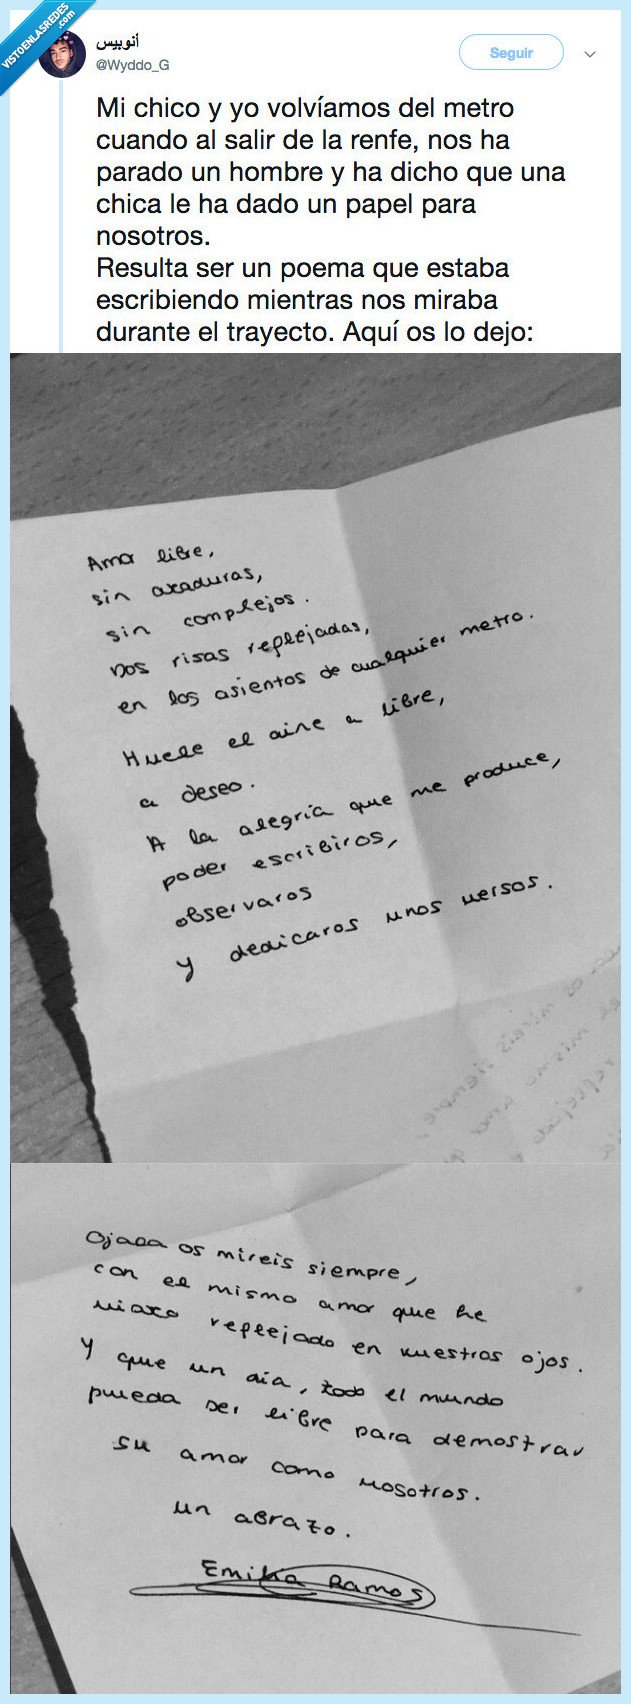 VISTOENLASREDES
.com
أنوبيس
@Wyddo_G
Seguir
Mi chico y yo volvíamos del metro
cuando al salir de la renfe, nos ha
parado un hombre y ha dicho que una
chica le ha dado un papel para
nosotros.
Resulta ser un poema que estaba
escribiendo mientras nos miraba
durante el trayecto. Aquí os lo dejo:
Amor libre,
sin ataduras,
sin complejos.
Dos risas reflejadas,
en los asientos de cualquier metro.
Huele el aire a libre,
a deseo.
A la alegría que me produce,
poder escribiros,
observaros
y dedicaros unos versos.
Ojala os mireis siempre,
con el mismo amor que he
visto reflejado en vuestros ojos.
Y que un dia, todo el mundo
pueda ser libre para demostrar
su amor como vosotros.
un abrazo.
Emilia Ramos